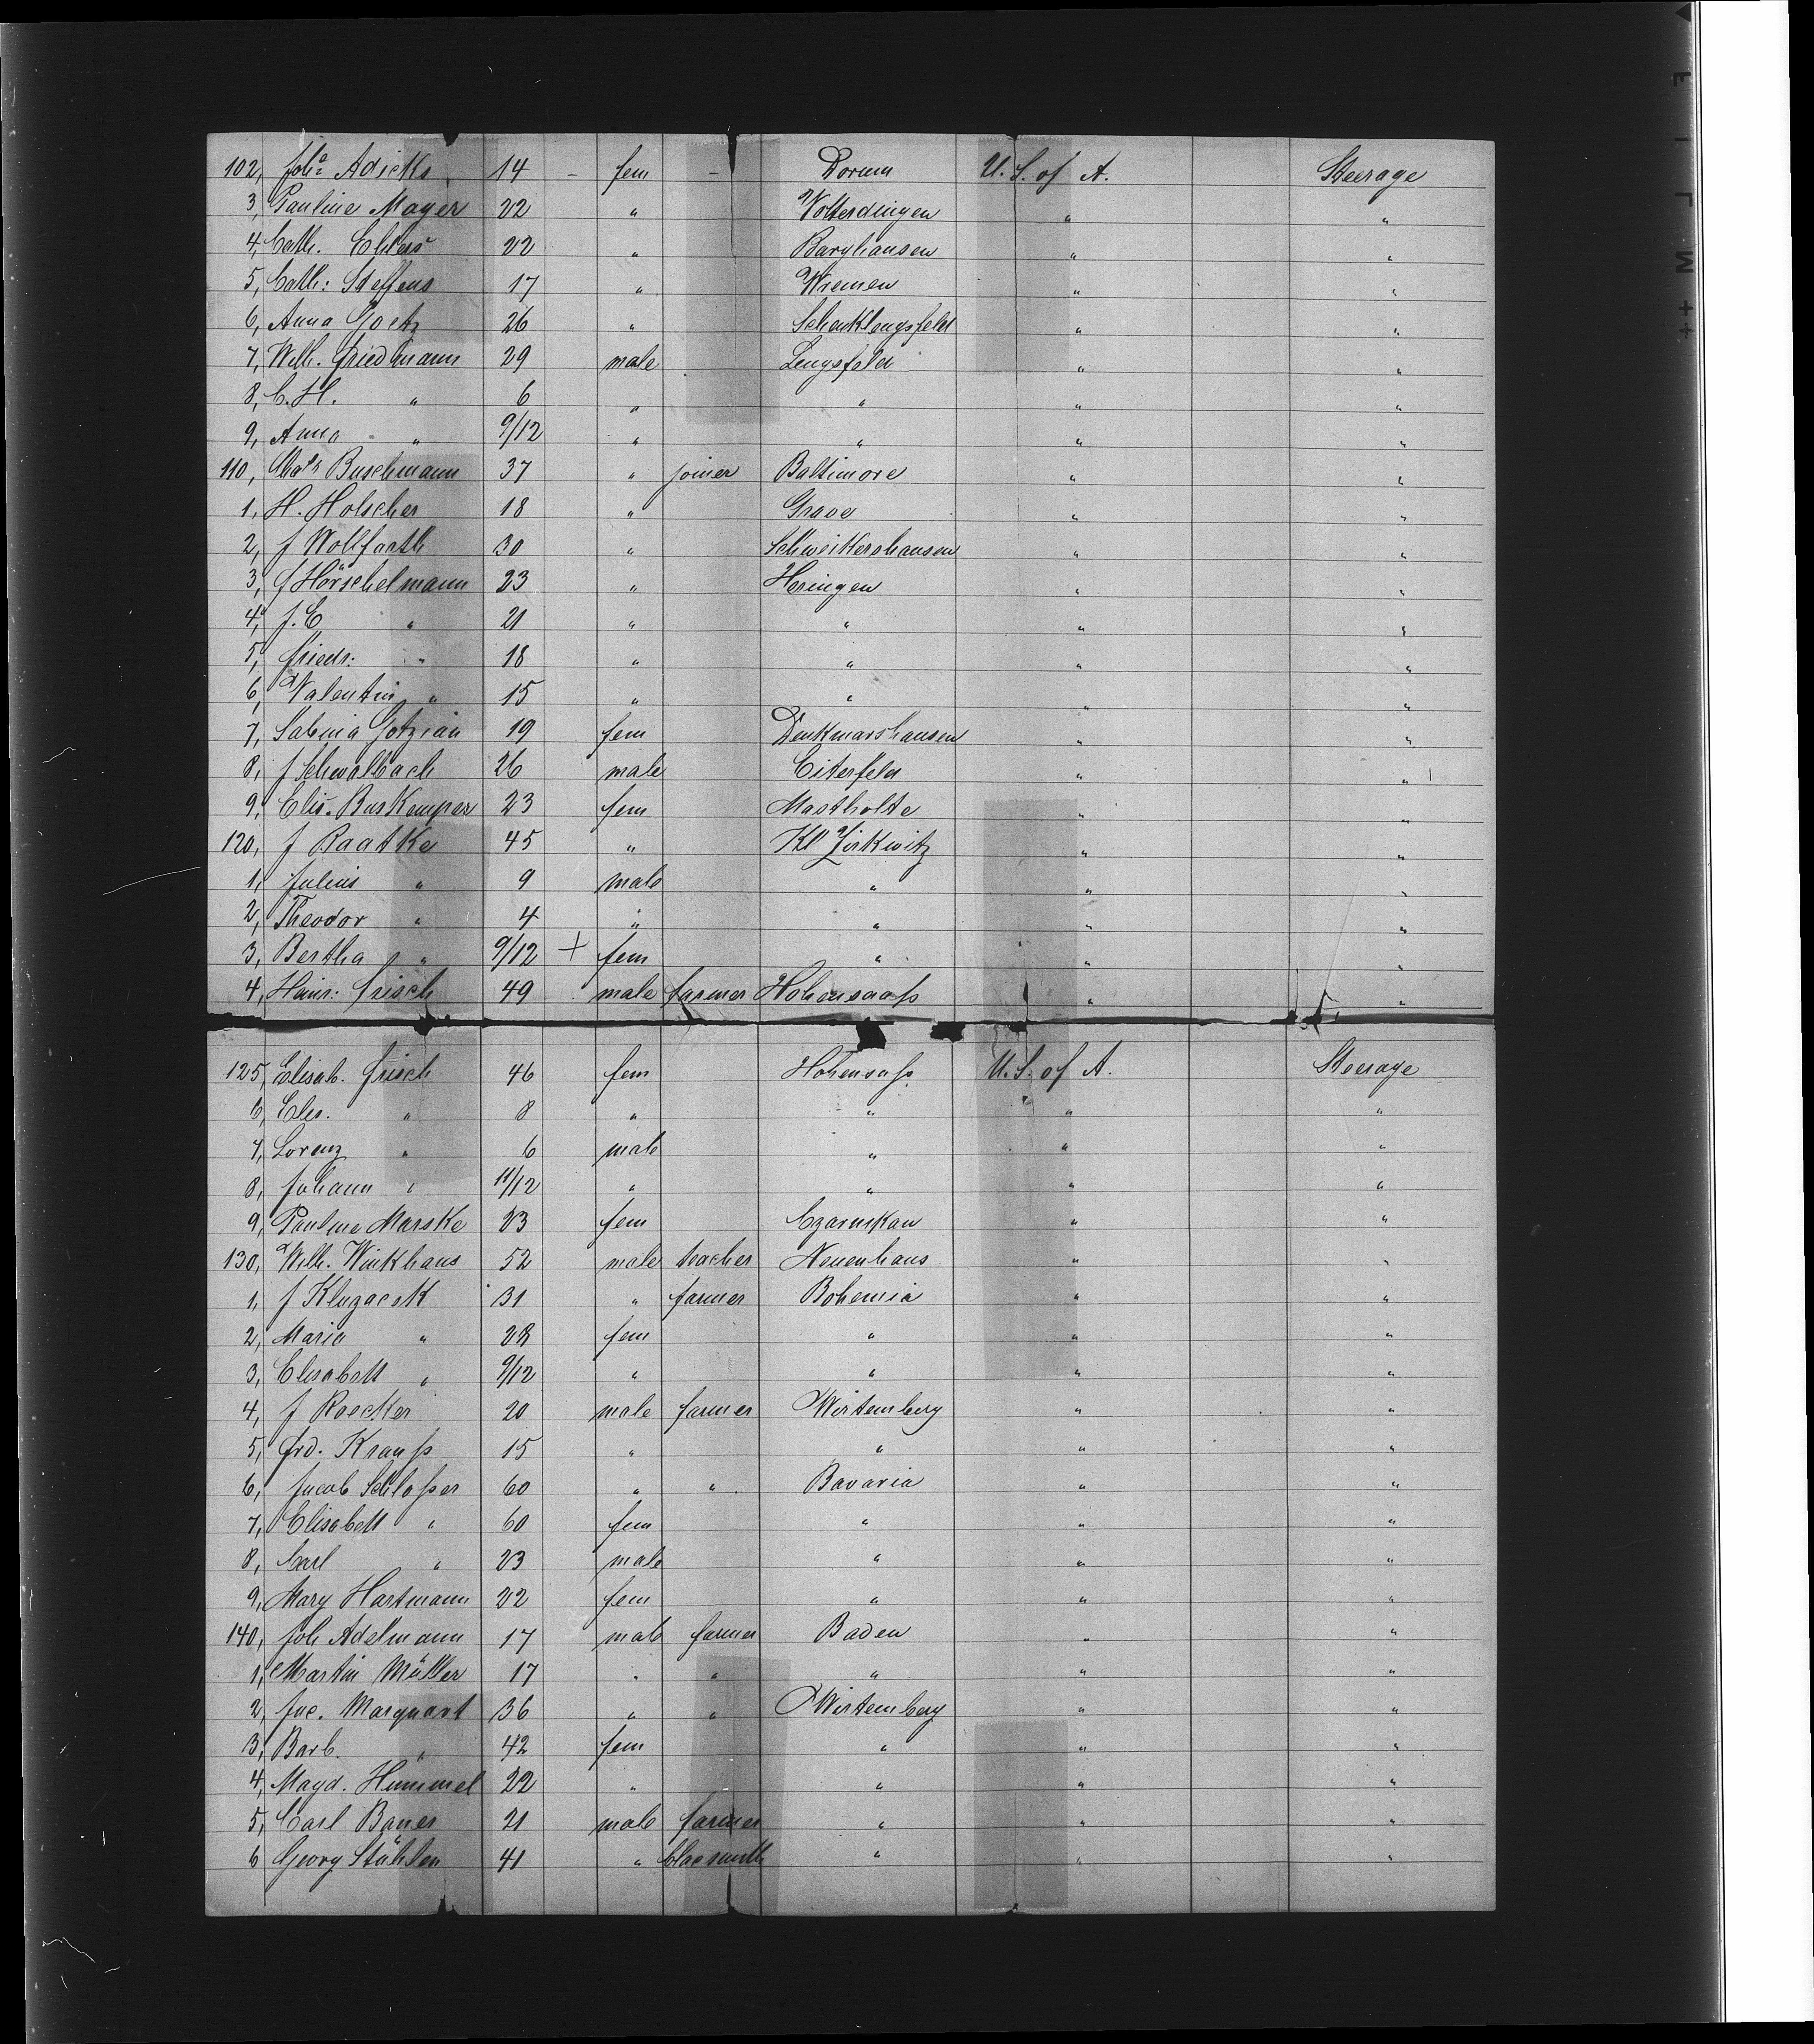 102, Joh<sup>a</sup> Adicks 14 - fem - Dorum U. S. of A. Steerage
3, Pauline Mayer 22 " Wolterdingen " "
4, Cath. Ehlers 22 " Barghausen " "
5, Cath: Steffens 17 " Wremen " "
6, Anna Goetz 26 " Schenklengsfeld " "
7, Wilh. Friedmann 29 male Lengsfeld " "
8, C. H. " 6 " " " "
9, Anna " 9/12 " " " "
110, Chas Buschmann 37 " joiner Baltimore " "
1, H. Holscher 18 " Grave " "
2, J Wollfarth 30 " Schweikershausen " "
3, J Hörschelmann 23 " Heringen " "
4, J. C " 21 " " " "
5, Friedr: " 18 " " " "
6, Valentin " 15 " " " "
7, Sabina Gotzian 19 fem Denkmarshausen " "
8, J Schwalbach 26 male Eiterfeld " "
9, Elis. Buskemper 23 fem Mastholte " "
120, J Raatke 45 " Kl Zirkwitz " "
1, Julius " 9 male " " "
2, Theodor " 4 " " " "
3, Bertha " 9/12 + fem " " "
4, Heinr: Frisch 49 male farmer Hohensaß " "
125, Elisab. Frisch 46 fem Hohensaß U. S. of A. Steerage
6, Elis. " 8 " " " "
7, Lorenz " 6 male " " "
8, Johann " 11/12 " " " "
9, Pauline Marske 23 fem Czarnikau " "
130, Wilh. Winkhaus 52 male teacher Neuenhaus " "
1, J Kluzacek 31 " farmer Bohemia " "
2, Maria " 28 fem " " "
3, Elisabett " 9/12 " " " "
4, J Roecker 20 male farmer Wirtemberg " "
5, Frd. Krauß 15 " " " "
6, Jacob Schloßer 60 " " Bavaria " "
7, Elisabett " 60 fem " " "
8, Carl " 23 male " " "
9, Mary Hartmann 22 fem " " "
140, Joh Adelmann 17 male farmer Baden " "
1, Martin Müller 17 " " " " "
2, Jac. Marquart 36 " " Wirtemberg " "
3, Barb. " 42 fem " " "
4, Magd. Hummel 22 " " " "
5, Carl Bauer 21 male farmer " " "
6 Georg Stählen 41 " blacsmith " " "